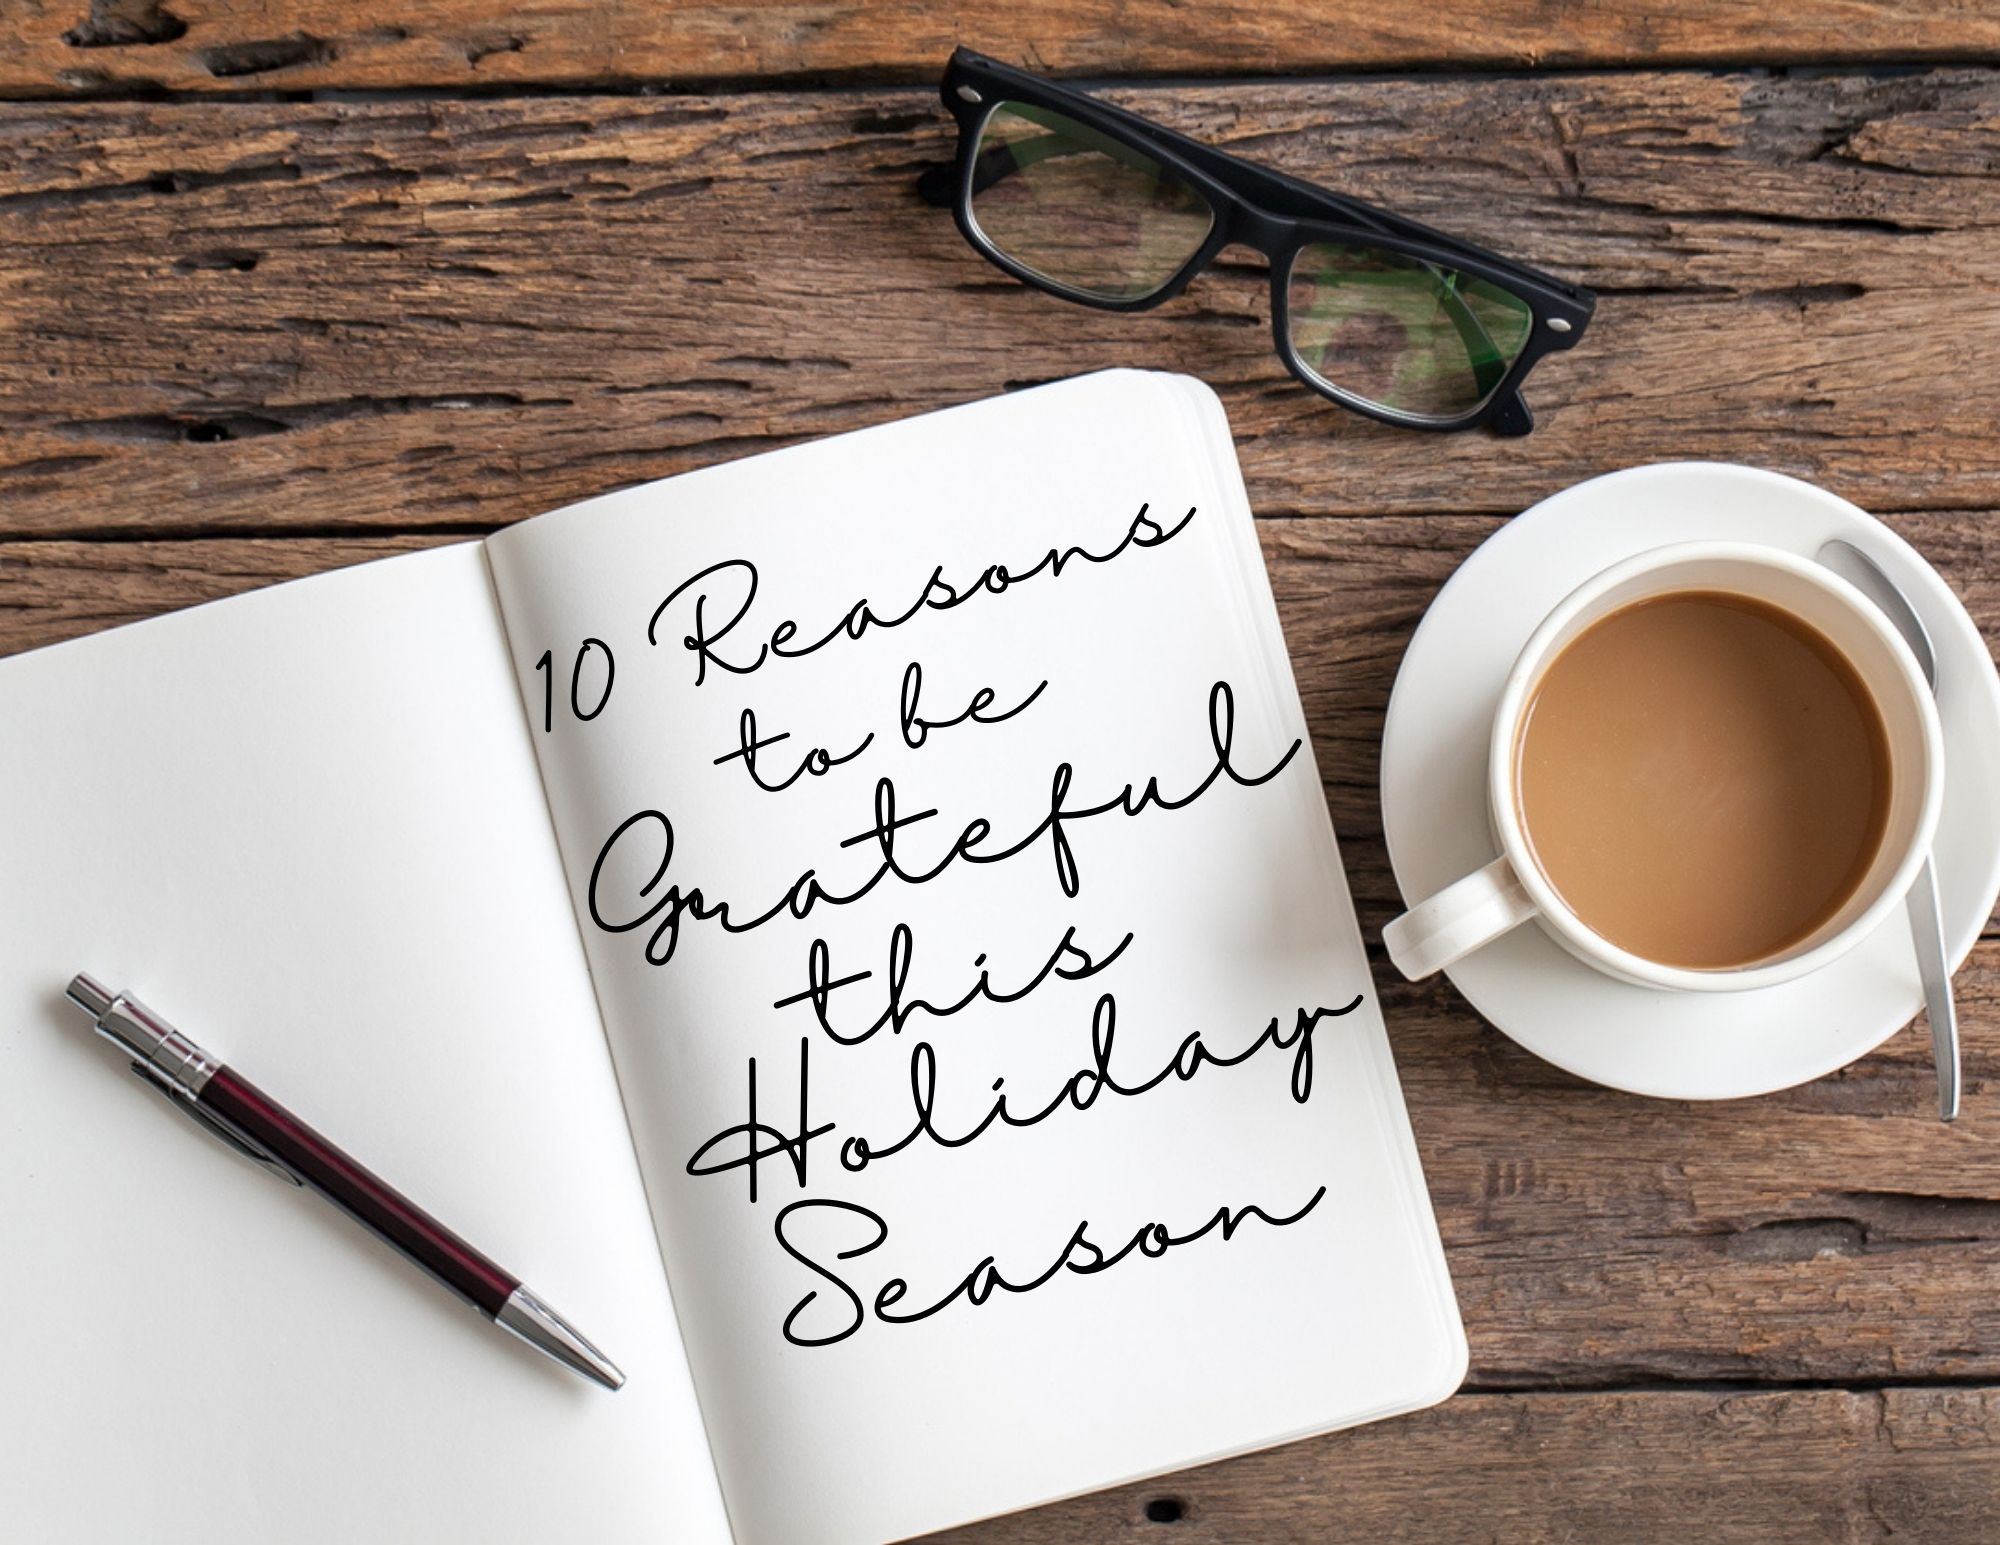 10 Reasons
to be
Grateful
this
Holiday
Season